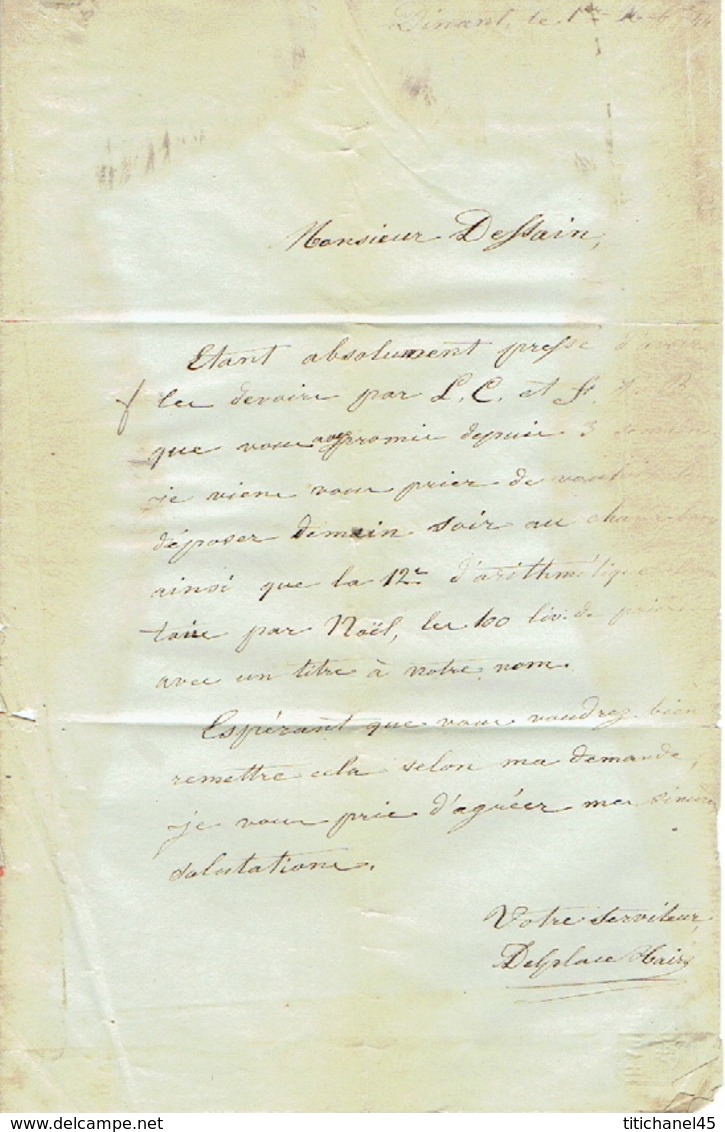 Dinant, le 1er
Monsieur Dessain,
Etant absolument pressé d'avoir
les devoirs par L. C. et F.
que vous avez promis depuis 3
je viens vous prier de
déposer demain soir au
ainsi que la 12e d'arithmétique
par Noël, les 100 liv. de prières
avec un titre à notre nom.
Espérant que vous voudrez bien
remettre cela selon ma demande,
je vous prie d'agréer mes sincères
salutations.
Votre serviteur,
Delplace
delcampe.net
titichanel45